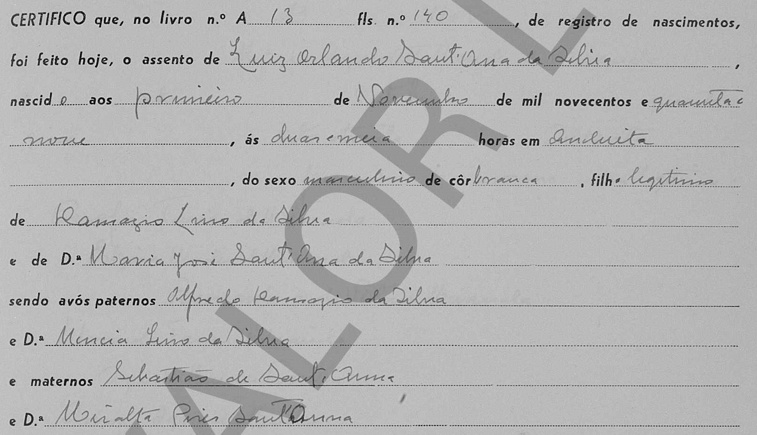 CERTIFICO que, no livro n.º A 13 fls. n.º 140, de registro de nascimentos,
foi feito hoje, o assento de Luiz Orlando Sant'Ana da Silva,
nascido aos primeiro de Novembro de mil novecentos e quarenta e
nove, ás duas e meia horas em
, do sexo masculino de côr branca, filho legitimo
de Ramazio Lino da Silva
e de D.ª Maria José Sant'Ana da Silva
sendo avós paternos Alfredo Ramazio da Silva
e D.ª Mencia Lino da Silva
e maternos Sebastião de Sant'Anna
e D.ª Pires Sant'Anna
VALOR